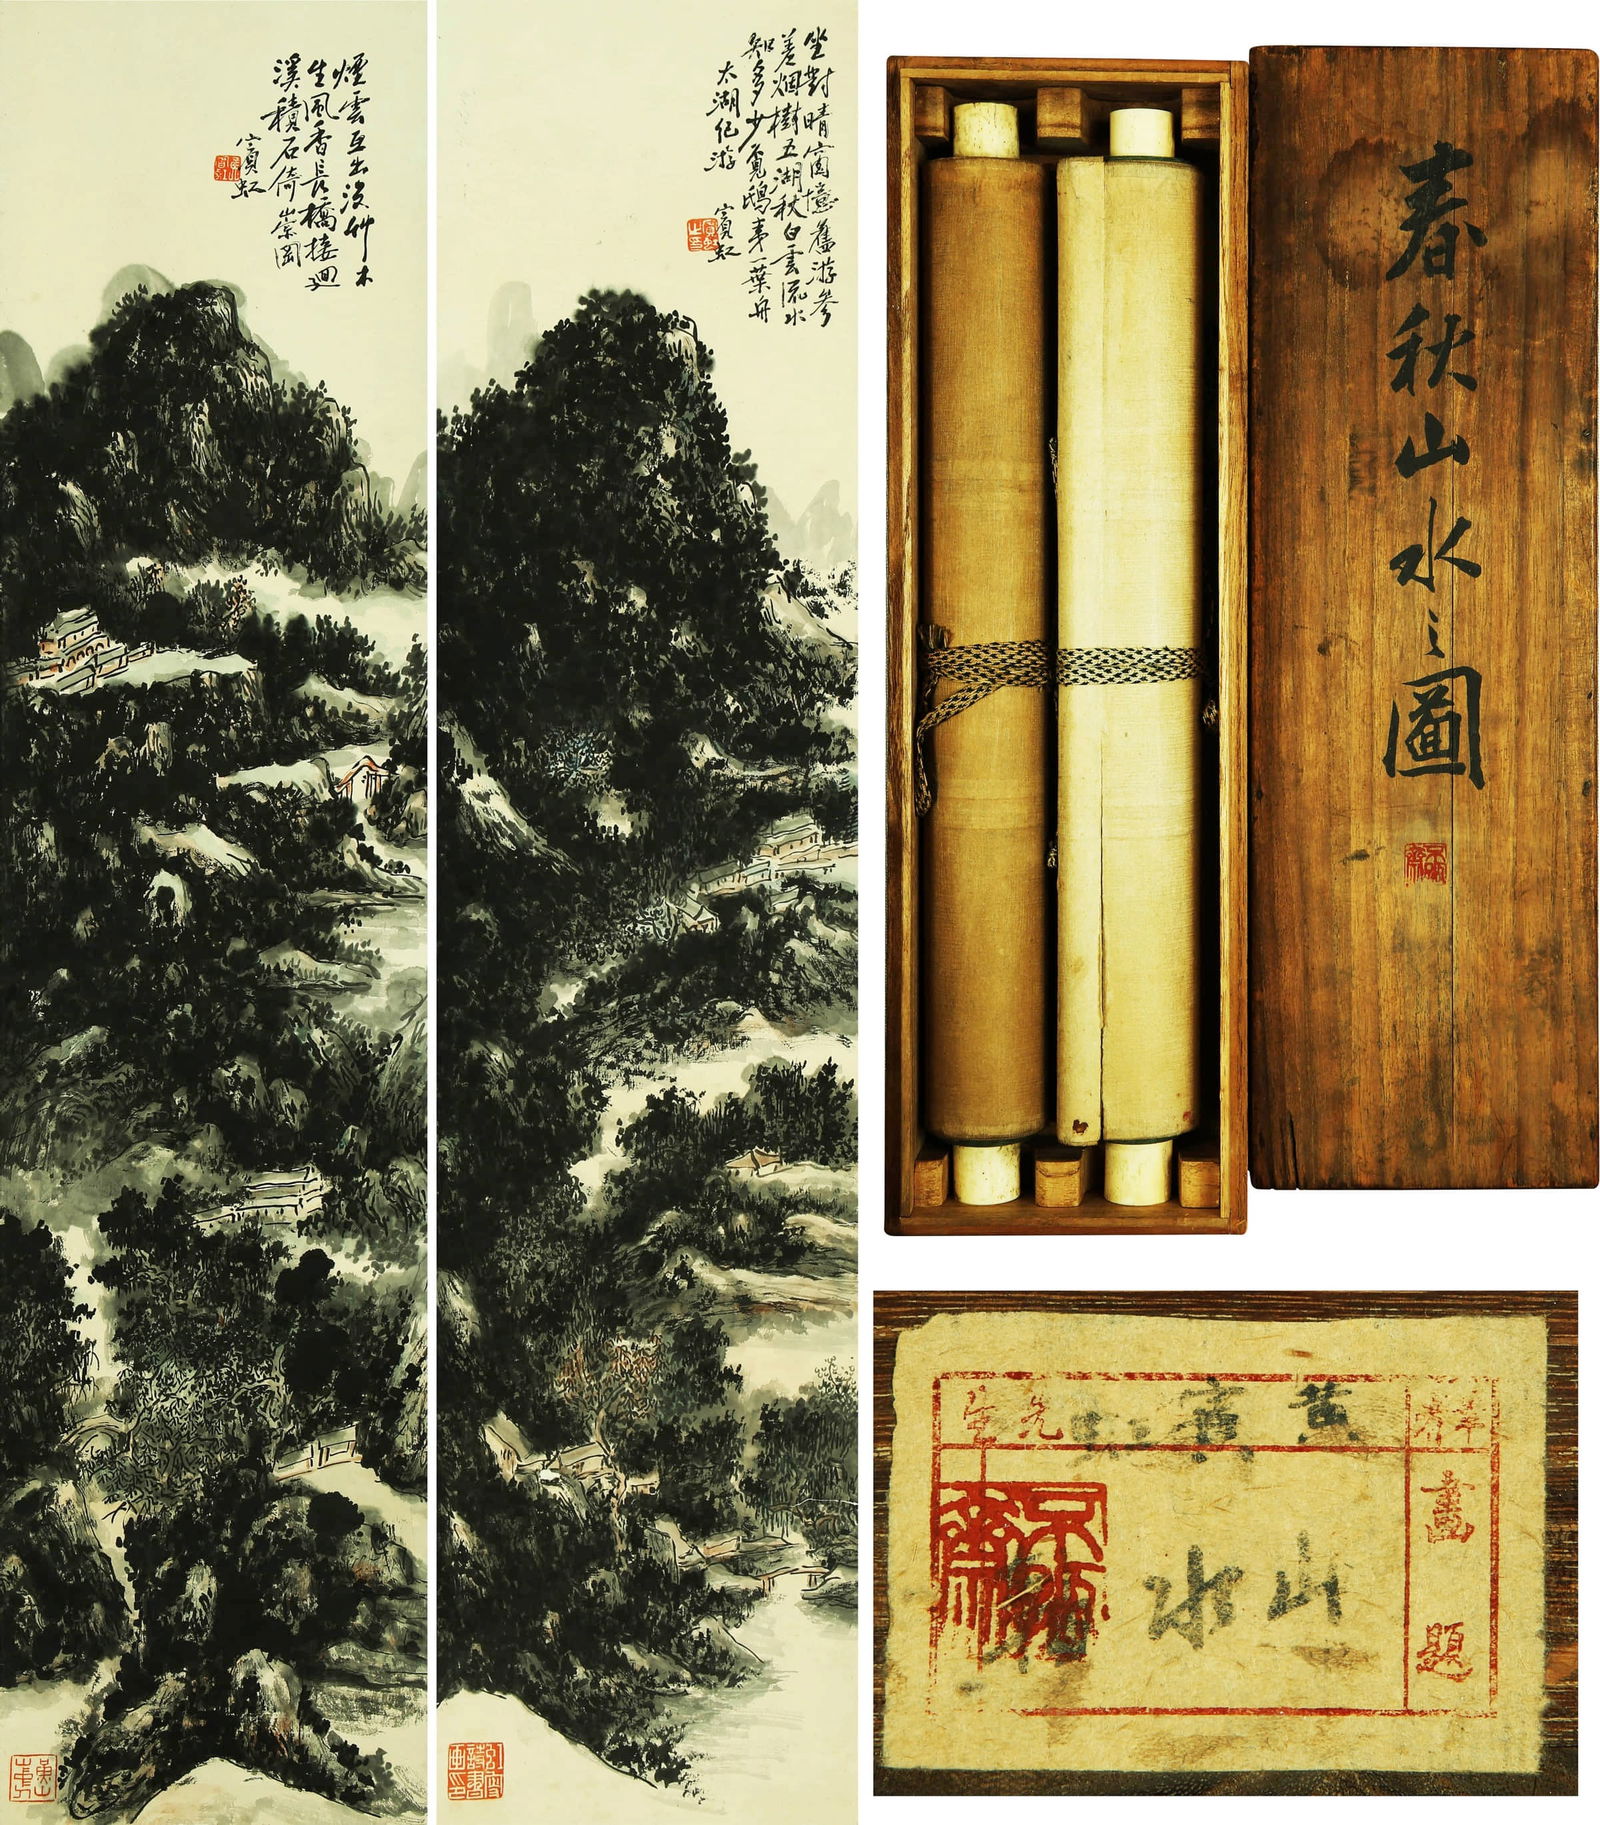 煙雲互出沒艸木
生風香長橋接迴
溪積石倚崇岡
賓虹
坐對晴窗憶舊游參
差烟樹五湖秋白雲流水
知多少覓鴟夷一葉舟
太湖紀游 賓虹
春秋山水之圖
黃賓虹先生
山水
畫題